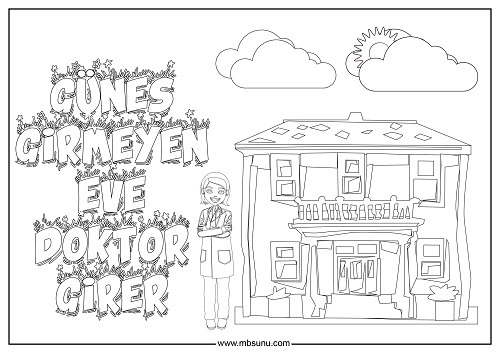 GÜNEŞ
GİRMEYEN
EVE
DOKTOR
GİRER
www.mbsunu.com